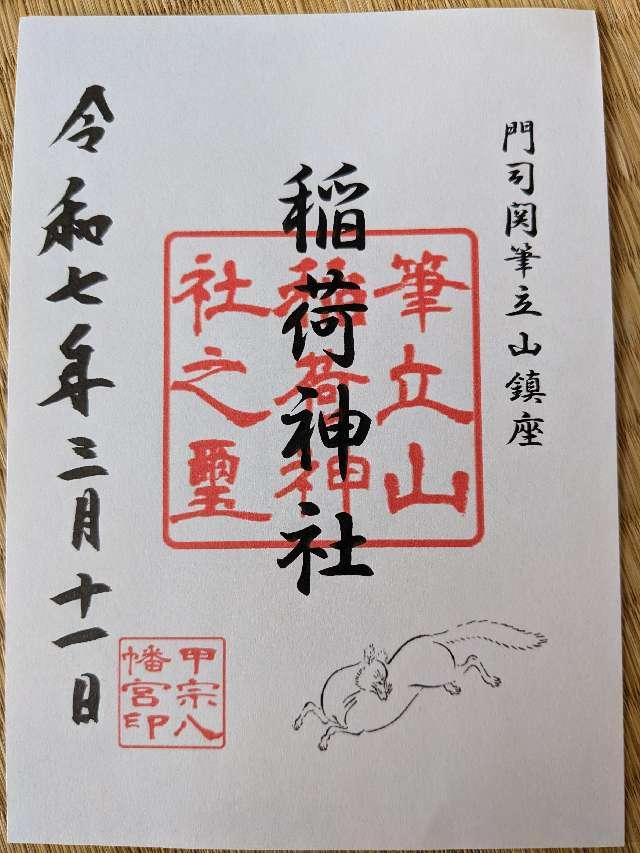 門司関筆立山鎮座
稲荷神社
筆立山
稲荷神
社之璽
令和七年三月十一日
甲宗八
幡宮印